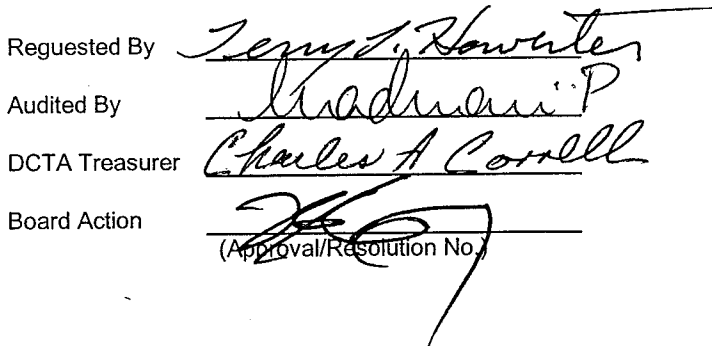 Reguested By Terry L. Howerter
Audited By P
DCTA Treasurer Charles A Correll
Board Action
(Approval/Resolution No.)